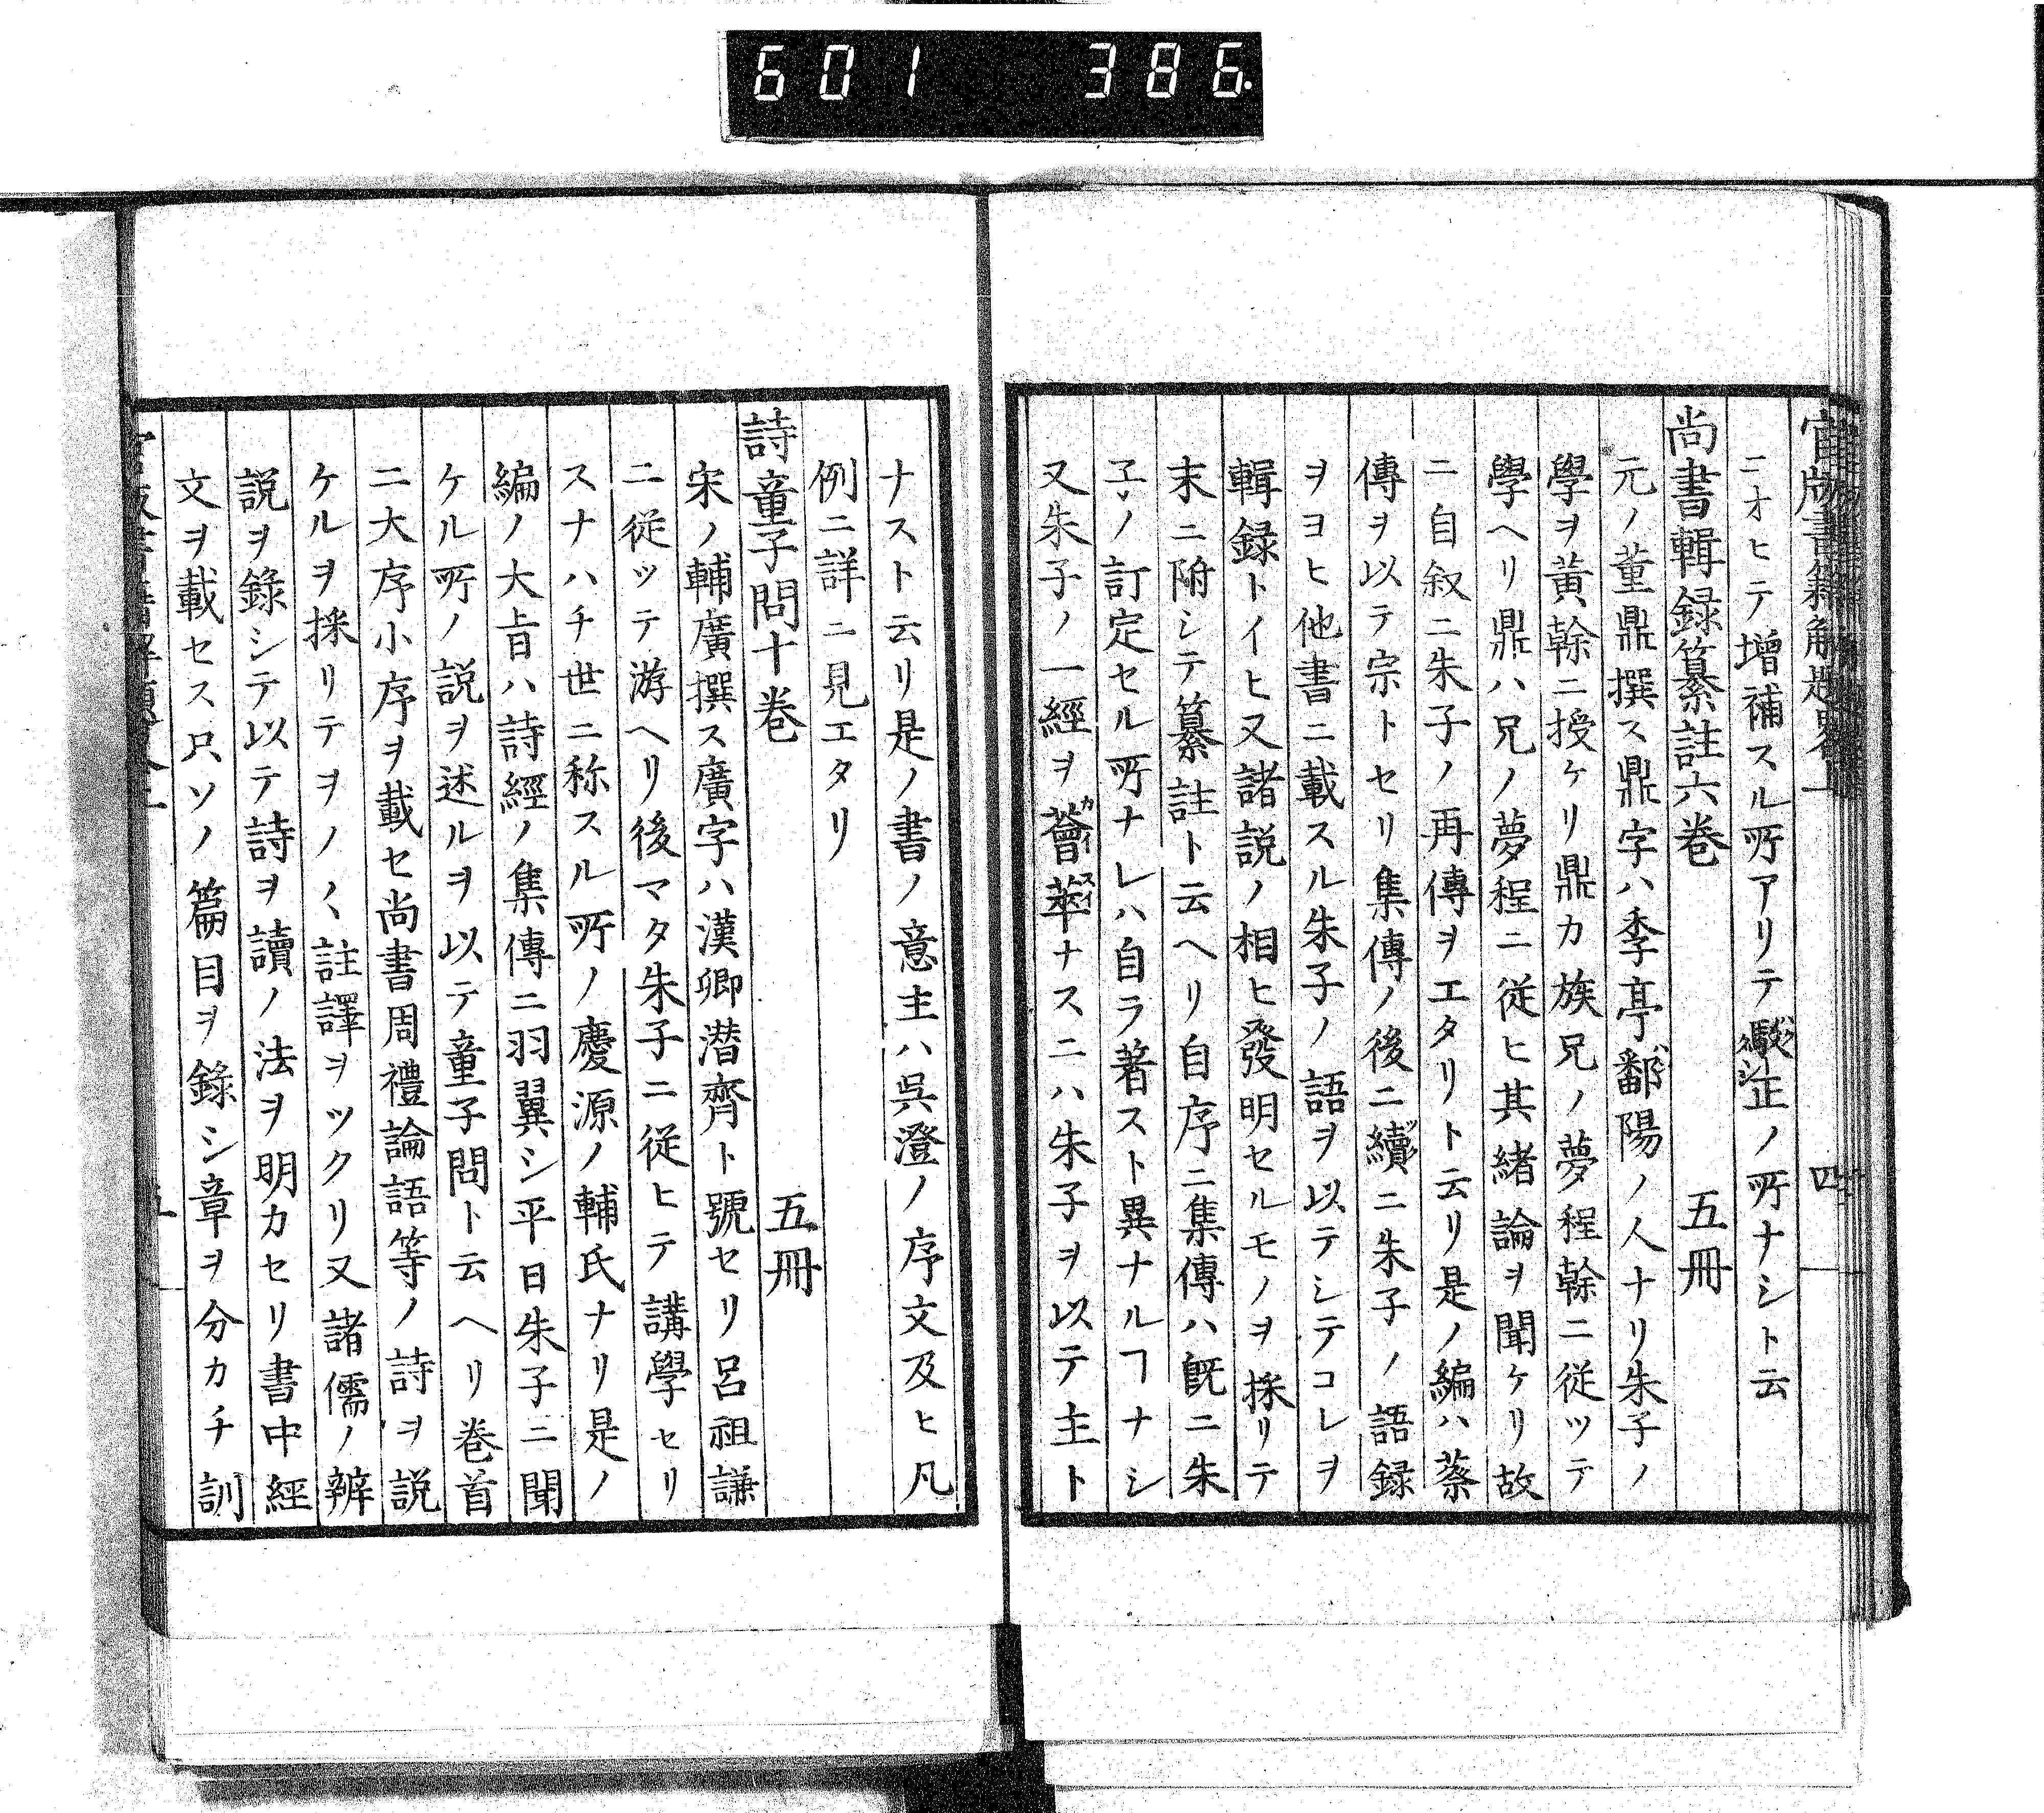 601 386.
官版書籍解題畧上 四
ニオヒテ增補スル所アリテ駁正ノ所ナシト云
尚書輯録纂註六巻 五冊
元ノ董鼎撰ス鼎字ハ季亭鄱陽ノ人ナリ朱子ノ
學ヲ黄榦ニ授ケリ鼎カ族兄ノ夢程榦ニ従ツテ
學ヘリ鼎ハ兄ノ夢程ニ従ヒ其緒論ヲ聞ケリ故
ニ自叙ニ朱子ノ再傳ヲエタリト云リ是ノ編ハ蔡
傳ヲ以テ宗トセリ集傳ノ後ニ續ニ朱子ノ語録
ヲヨヒ他書ニ載スル朱子ノ語ヲ以テシテコレヲ
輯録トイヒ又諸説ノ相ヒ發明セルモノヲ採リテ
末ニ附シテ纂註ト云ヘリ自序ニ集傳ハ既ニ朱
子ノ訂定セル所ナレハ自ラ著スト異ナルヿナシ
又朱子ノ一經ヲ薈萃ナスニハ朱子ヲ以テ主ト
ナスト云リ是ノ書ノ意主ハ呉澄ノ序文及ヒ凡
例ニ詳ニ見エタリ
詩童子問十巻 五冊
宋ノ輔廣撰ス廣字ハ漢卿潜齊ト號セリ呂祖謙
ニ従ツテ游ヘリ後マタ朱子ニ従ヒテ講學セリ
スナハチ世ニ称スル所ノ慶源ノ輔氏ナリ是ノ
編ノ大㫖ハ詩經ノ集傳ニ羽翼シ平日朱子ニ聞
ケル所ノ説ヲ述ルヲ以テ童子問ト云ヘリ巻首
ニ大序小序ヲ載セ尚書周禮論語等ノ詩ヲ説
ケルヲ採リテヲノ〱註譯ヲツクリ又諸儒ノ辨
説ヲ錄シテ以テ詩ヲ讀ノ法ヲ明カセリ書中經
文ヲ載セス只ソノ篇目ヲ錄シ章ヲ分カチ訓